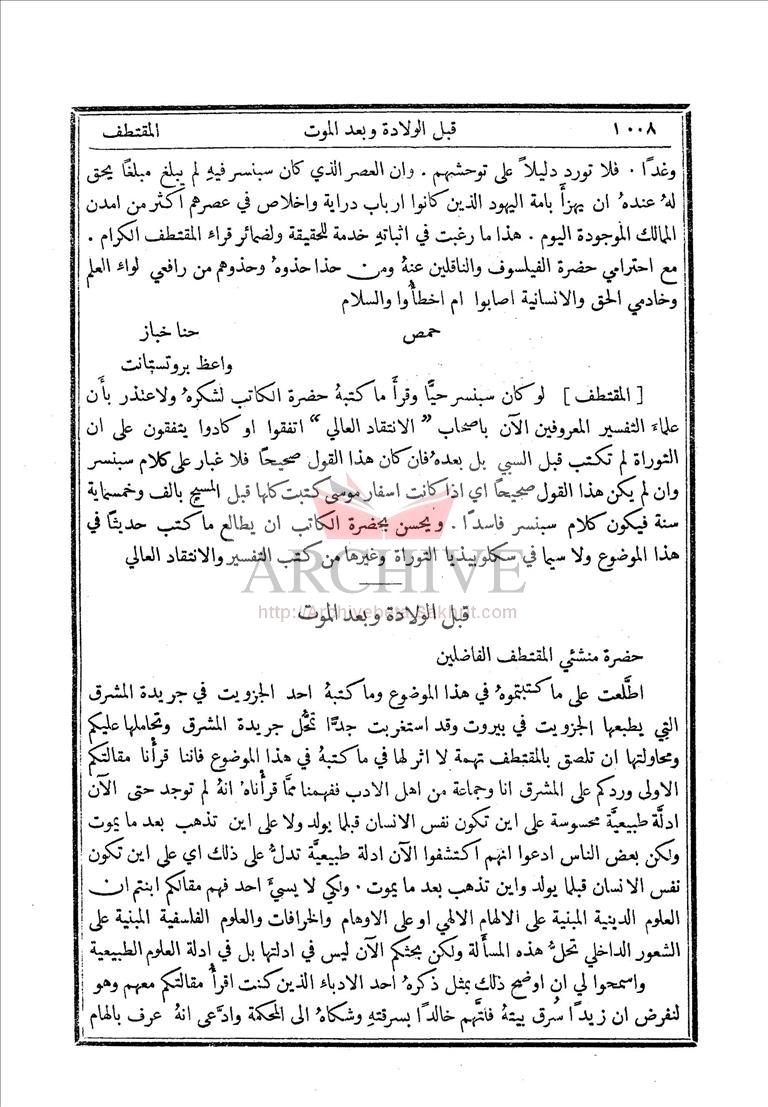 ١٠٠٨ قبل الولادة وبعد الموت المقتطف
وغدًا . فلا تورد دليلاً على توحشهم . وان العصر الذي كان سبنسر فيهِ لم يبلغ مبلغًا يحق
لهُ عندهُ ان يهزأَ بامة اليهود الذين كانوا ارباب دراية واخلاص في عصرهم اكثر من امدن
الممالك الموجودة اليوم . هذا ما رغبت في اثباتهِ خدمة للحقيقة ولضمائر قراء المقتطف الكرام .
مع احترامي حضرة الفيلسوف والناقلين عنهُ ومن حذا حذوهُ وحذوهم من رافعي لواء العلم
وخادمي الحق والانسانية اصابوا ام اخطأُوا والسلام
حمص حنا خباز
واعظ بروتستانت
[ المقتطف ] لو كان سبنسر حيًّا وقرأَ ما كتبهُ حضرة الكاتب لشكرهُ ولاعتذر بأَن
علماءَ التفسير المعروفين الآن باصحاب " الانتقاد العالي " اتفقوا او كادوا يتفقون على ان
التوراة لم تكتب قبل السبي بل بعدهُ فان كان هذا القول صحيحًا فلا غبار على كلام سبنسر
وان لم يكن هذا القول صحيحًا اي اذا كانت اسفار موسى كتبت كلها قبل المسيح بالف وخمسماية
سنة فيكون كلام سبنسر فاسدًا . ويحسن بحضرة الكاتب ان يطالع ما كتب حديثًا في
هذا الموضوع ولا سيما في سكلوبيذيا التوراة وغيرها من كتب التفسير والانتقاد العالي
ARCHIVE
http://Archivebeta.Sakhrit.com
قبل الولادة وبعد الموت
حضرة منشئي المقتطف الفاضلين
اطَّلعت على ما كتبتموهُ في هذا الموضوع وما كتبهُ احد الجزويت في جريدة المشرق
التي يطبعها الجزويت في بيروت وقد استغربت جدًّا تمحُّل جريدة المشرق وتحاملها عليكم
ومحاولتها ان تلصق بالمقتطف تهمة لا اثر لها في ما كتبهُ في هذا الموضوع فاننا قرأْنا مقالتكم
الاولى وردكم على المشرق انا وجماعة من اهل الادب ففهمنا ممَّا قرأْناهُ انهُ لم توجد حتى الآن
ادلَّة طبيعيَّة محسوسة على اين تكون نفس الانسان قبلما يولد ولا على اين تذهب بعد ما يموت
ولكن بعض الناس ادعوا انهم اكتشفوا الآن ادلة طبيعيَّة تدلُّ على ذلك اي على اين تكون
نفس الانسان قبلما يولد واين تذهب بعد ما يموت . ولكي لا يسيءَ احد فهم مقالكم ابنتم ان
العلوم الدينية المبنية على الالهام الالهي او على الاوهام والخرافات والعلوم الفلسفية المبنية على
الشعور الداخلي تحلُّ هذه المسأَلة ولكن بحثكم الآن ليس في ادلتها بل في ادلة العلوم الطبيعية
واسمحوا لي ان اوضح ذلك بمثل ذكرهُ احد الادباء الذين كنت اقرأُ مقالتكم معهم وهو
لنفرض ان زيدًا سُرق بيتهُ فاتَّهم خالدًا بسرقتهِ وشكاهُ الى المحكمة وادَّعى انهُ عرف بالهام